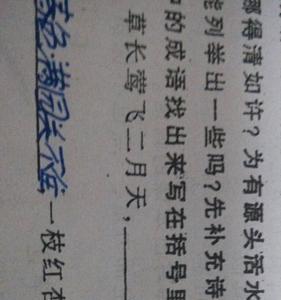 哪得清如许？为有源头活水
能列举出一些吗？先补充诗
中的成语找出来写在括号里
草长莺飞二月天，
春色满园关不住一枝红杏